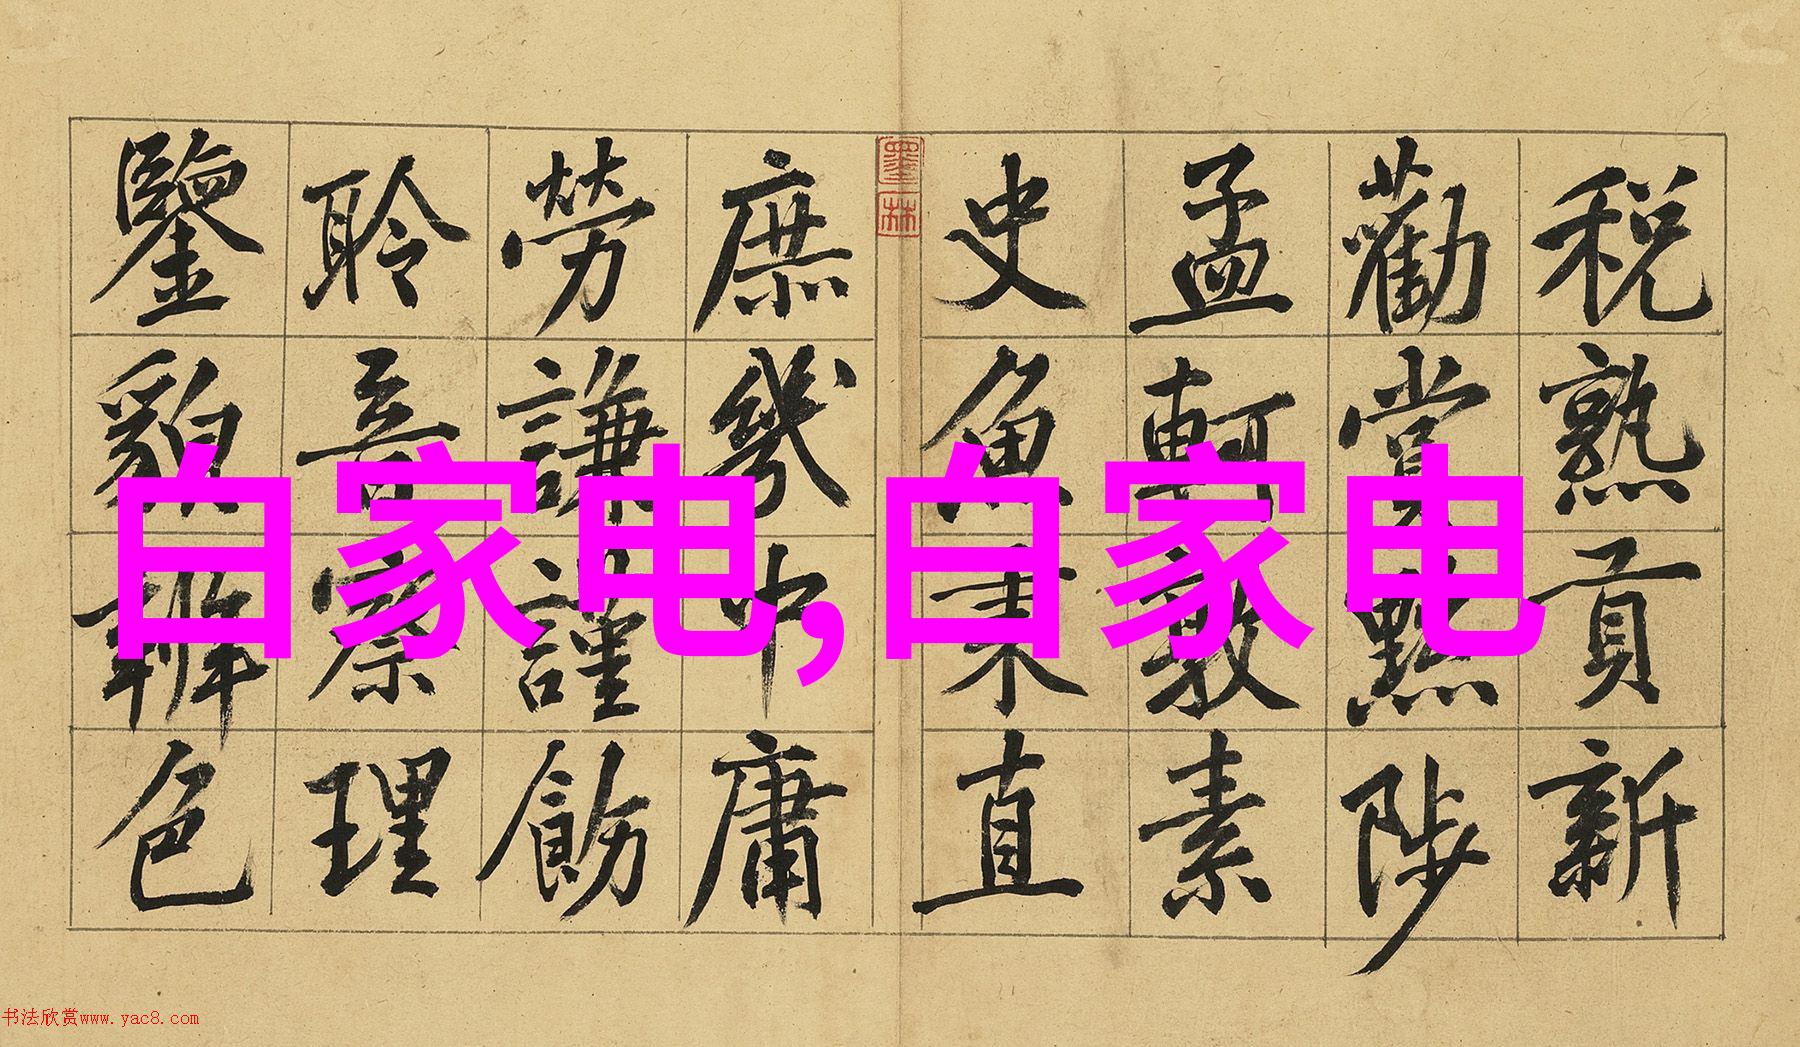 税熟貢新
勸賞黜陟
孟軻敦素
史魚秉直
墨林
庶幾中庸
勞謙謹飭
聆音察理
鑒貌辨色
自家电,自家电
书法欣赏www.yac8.com